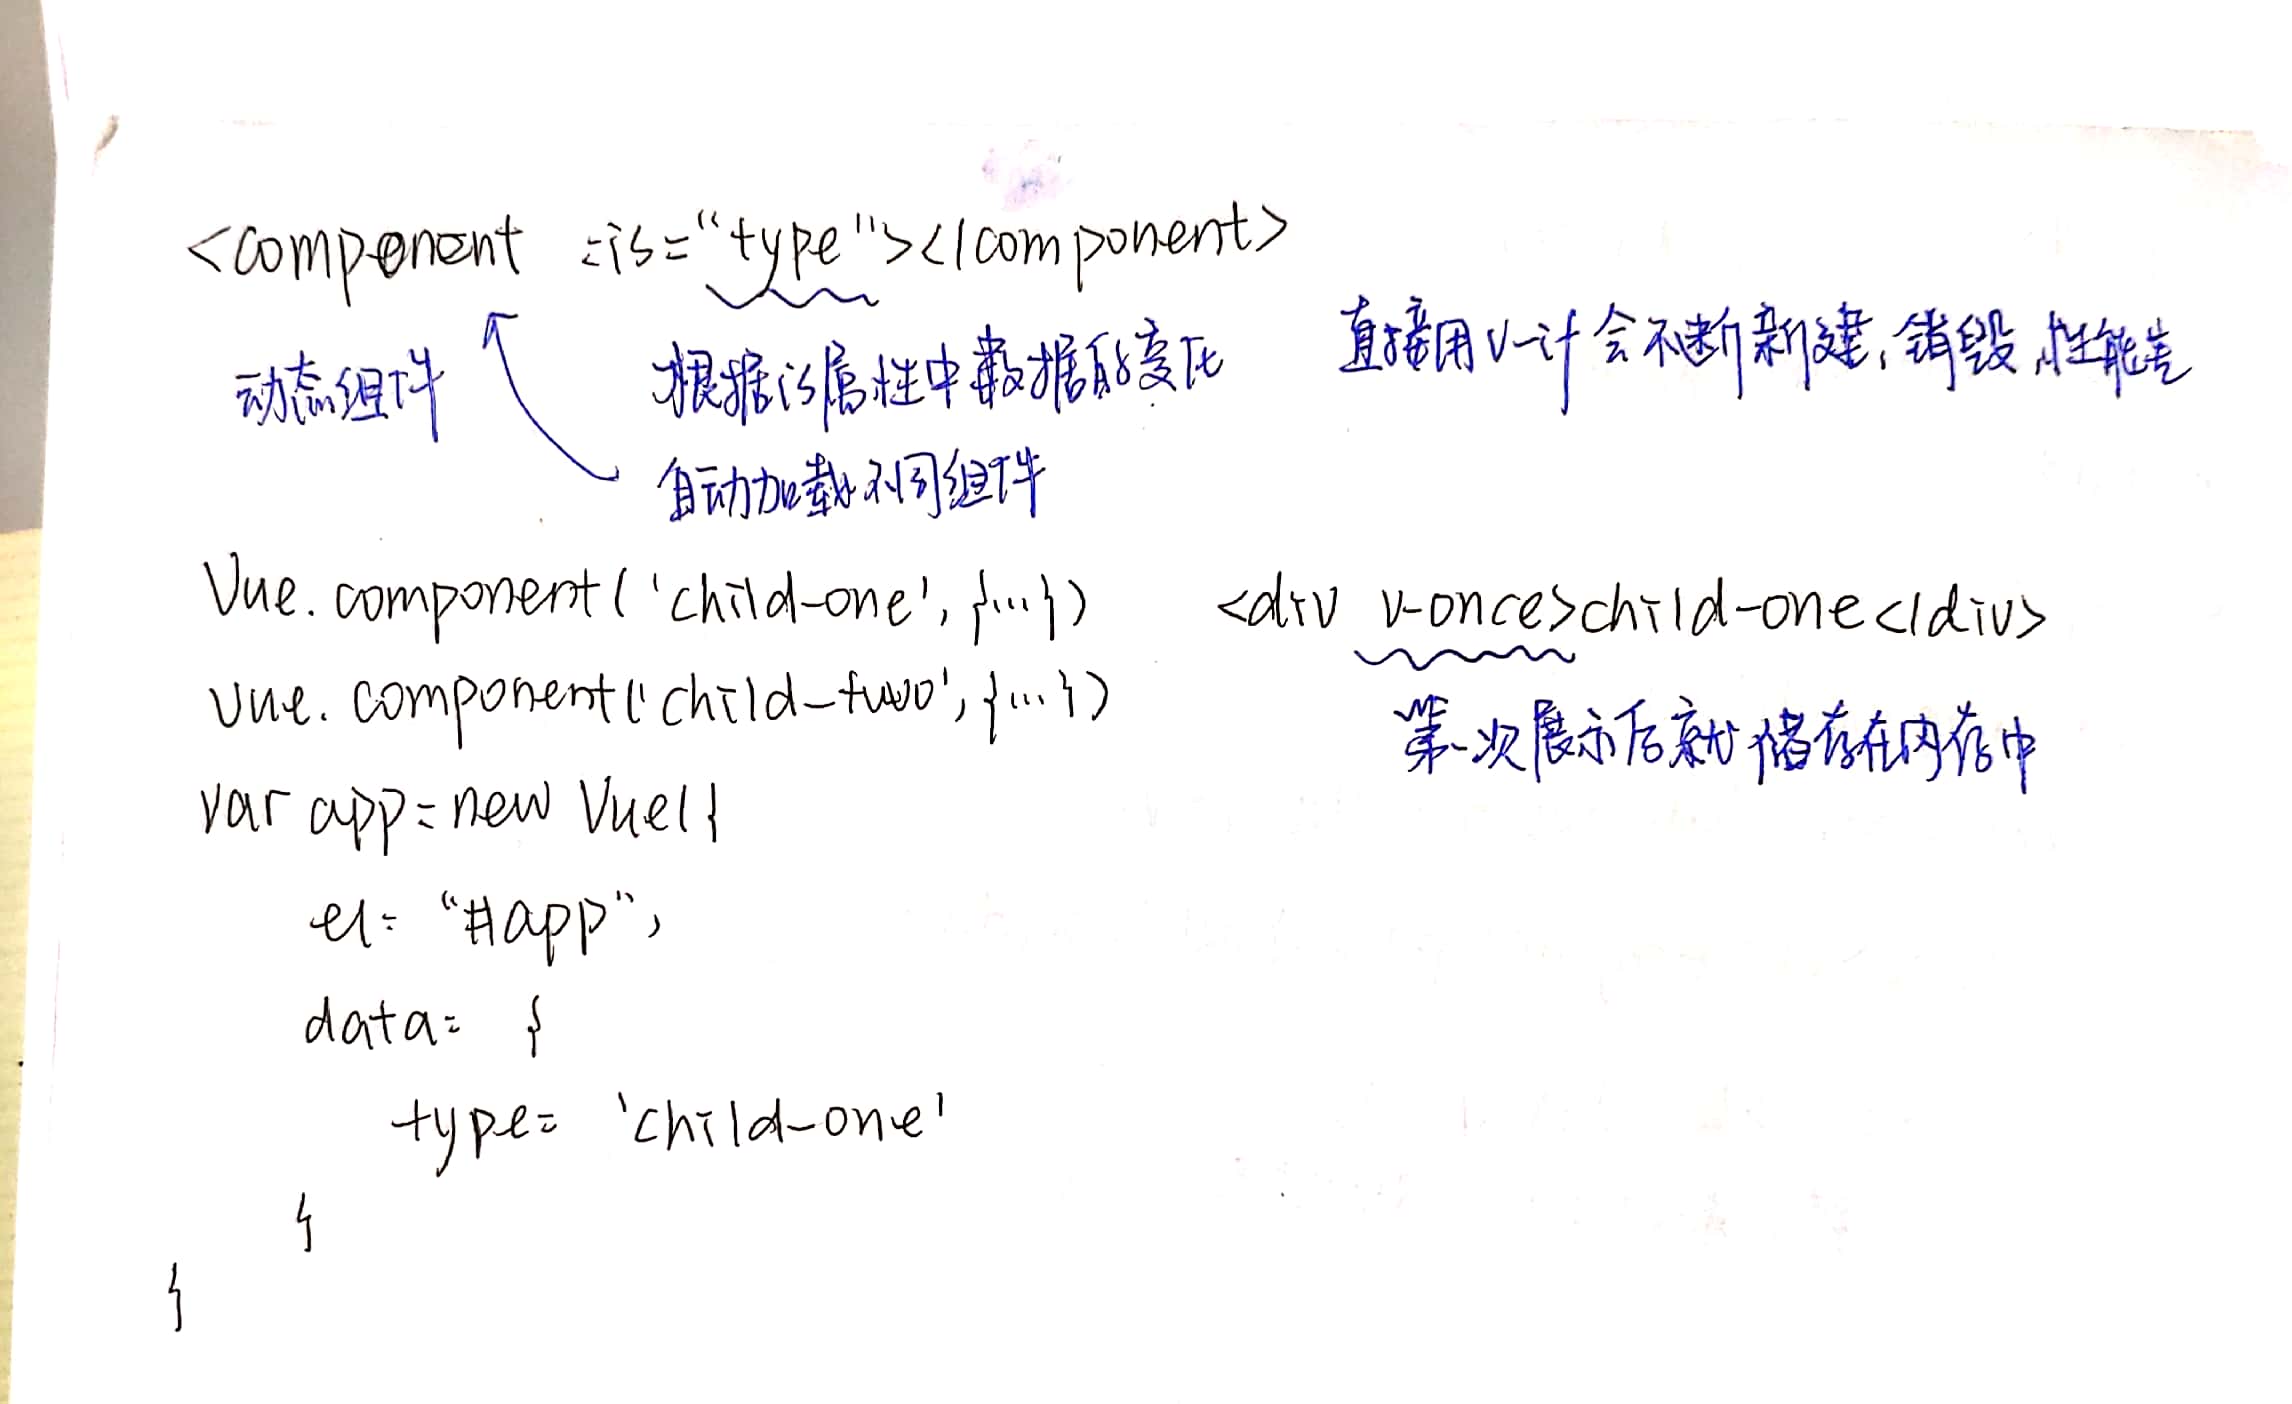 <component :is="type"></component>
动态组件
根据is属性中数据的变化
自动加载不同组件
直接用v-if会不断新建,销毁,性能差
Vue.component('child-one',{...})
Vue.component('child-two',{...})
var app=new Vue({
el: "#app",
data: {
type: 'child-one'
}
}
<div v-once>child-one</div>
第一次展示后就储存在内存中